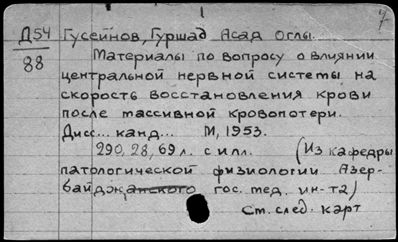 7
Д54 Гусейнов, Гуршад Асад Оглы.
88
Материалы по вопросу о влиянии
центральной нервной системы на
скорость восстановления крови
после массивной кровопотери.
Дисс... канд... М, 1953.
290, 28, 69 л. с илл. (Из кафедры
патологической физиологии Азер-
байджанского гос. мед. ин-та)
См. след. карт